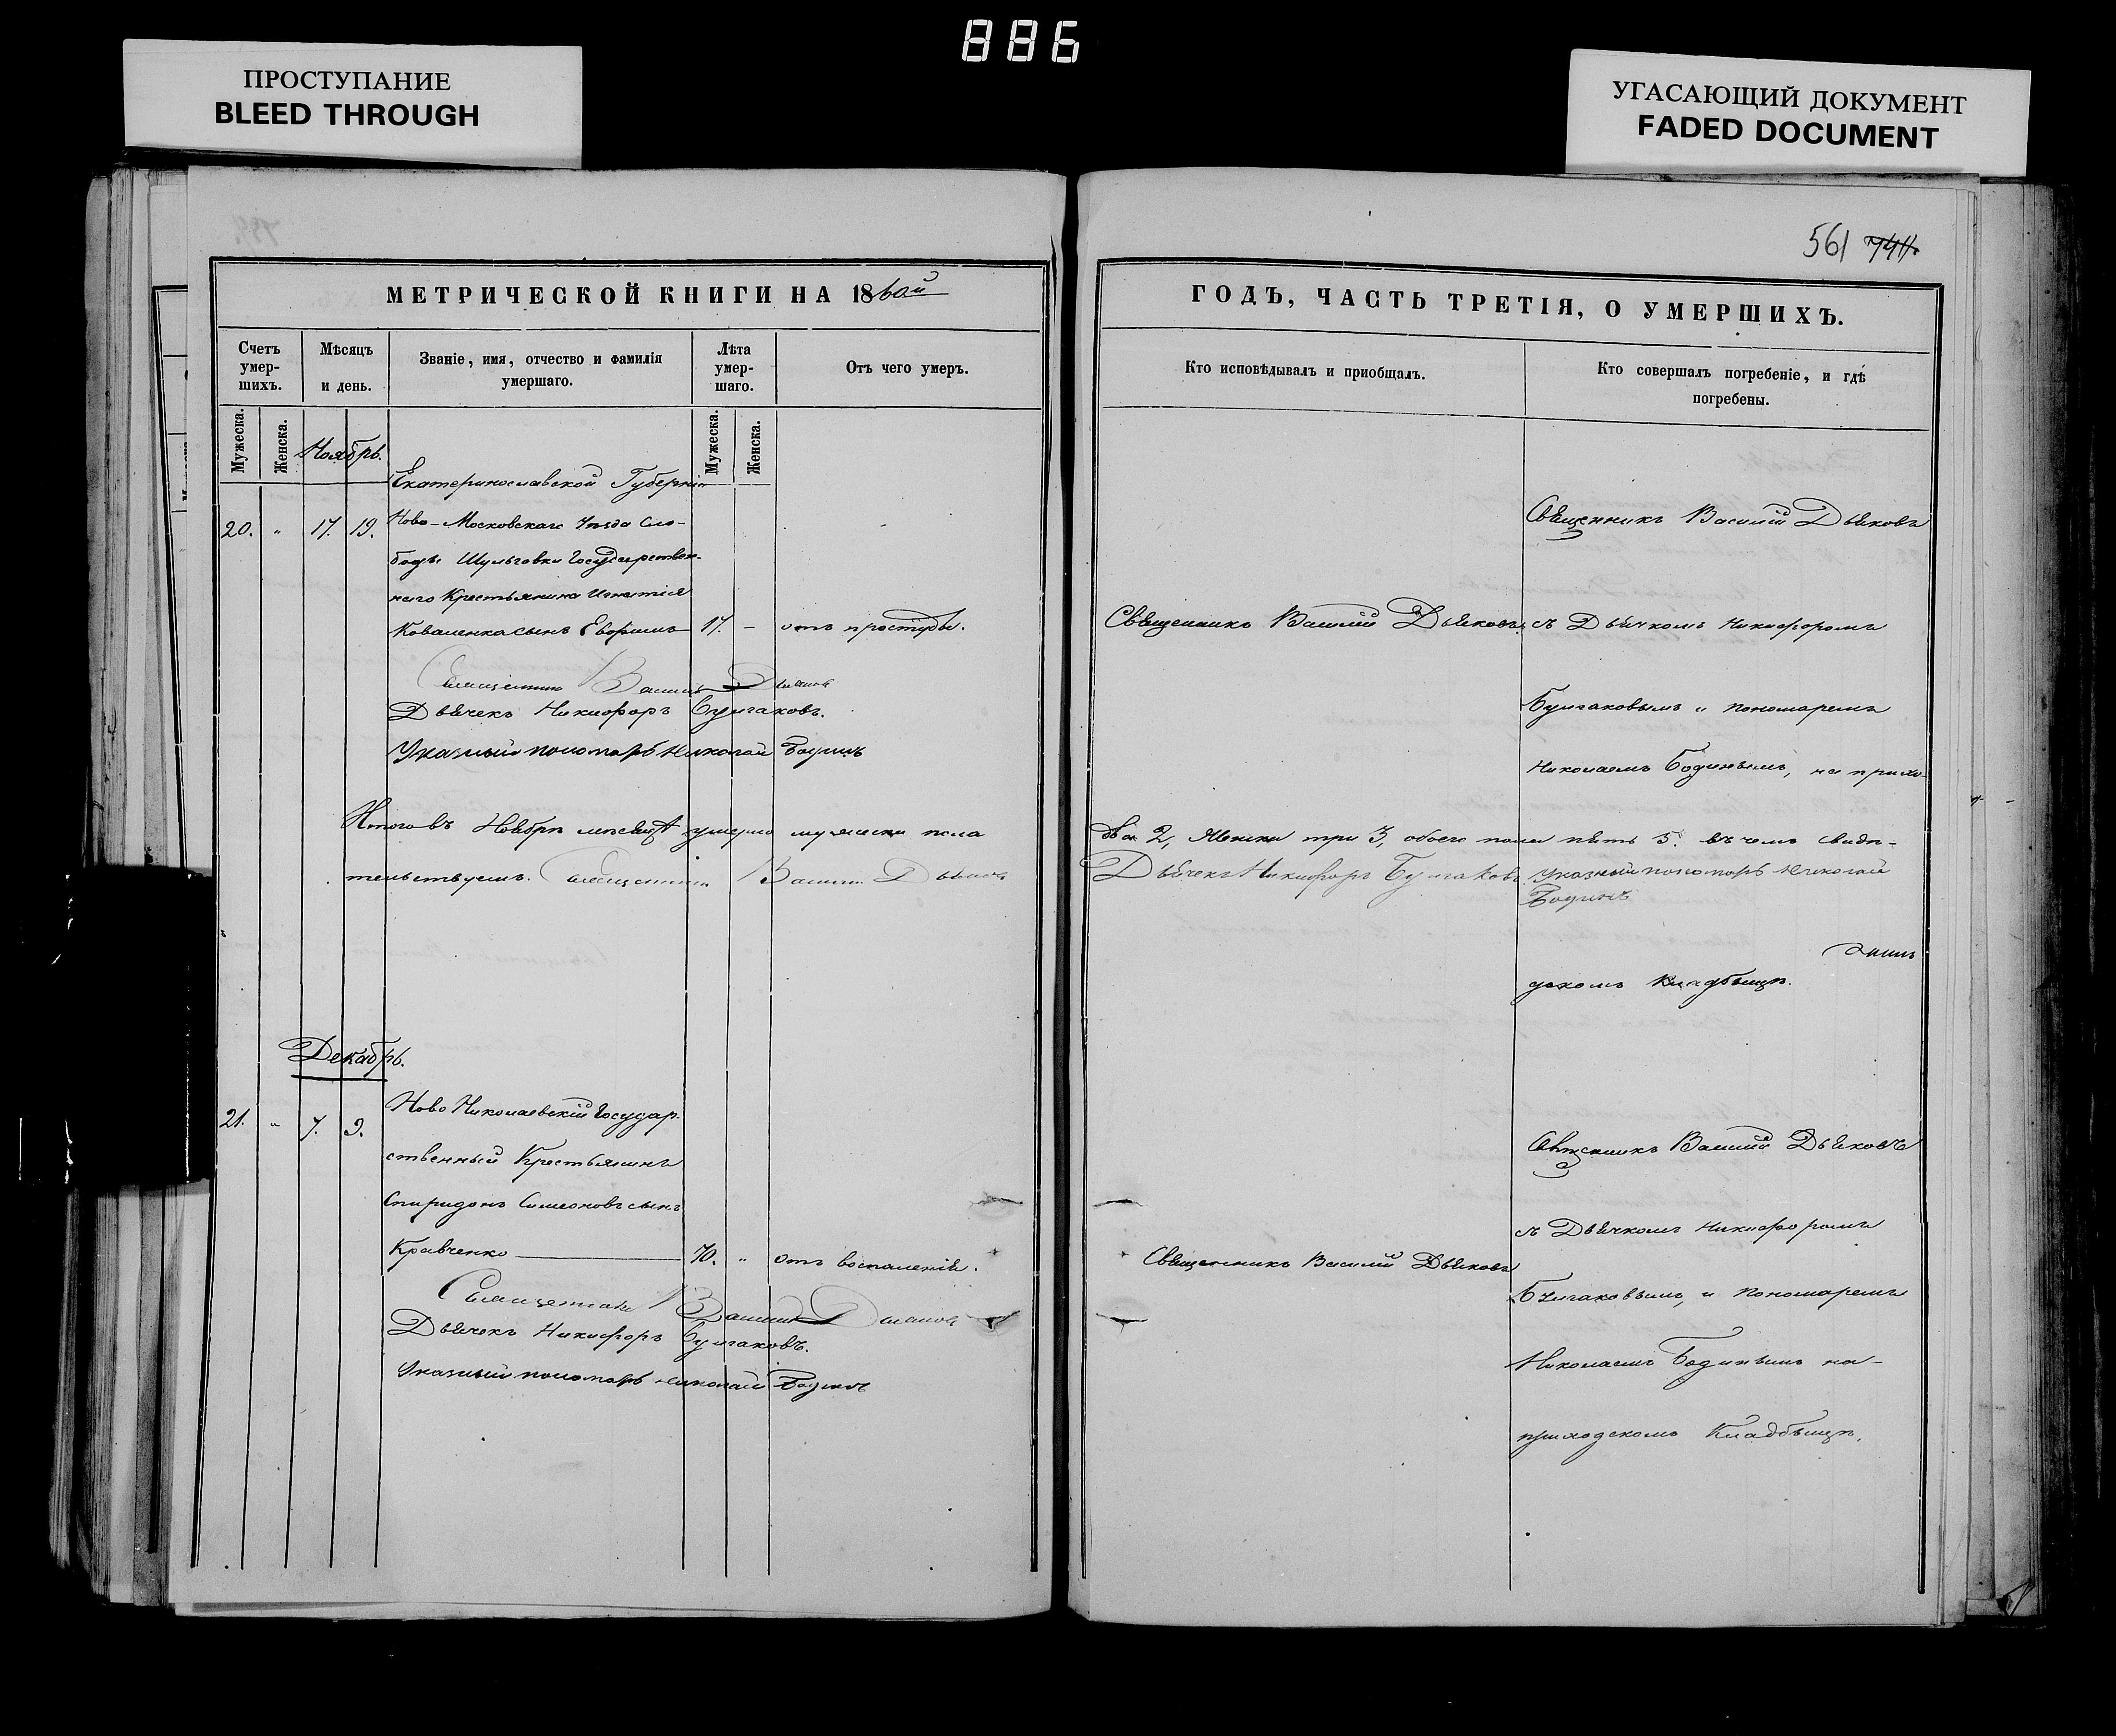 886
ПРОСТУПАНИЕ
BLEED THROUGH
УГАСАЮЩИЙ ДОКУМЕНТ
FADED DOCUMENT
561 741.
МЕТРИЧЕСКОЙ КНИГИ НА 1860й
ГОДЪ, ЧАСТЬ ТРЕТІЯ, О УМЕРШИХЪ.
Счетъ умер-шихъ.
Мѣсяцъ и день.
Званіе, имя, отчество и фамилія умершаго.
Лѣта умер-шаго.
Отъ чего умеръ.
Кто исповѣдывалъ и пріобщалъ.
Кто совершалъ погребеніе, и гдѣ погребены.
Мужеска.
Женска.
Мужеска.
Женска.
Ноябрь.
Екатеринославской Губерніи
20. " 17. 19. Ново-Московскаго Уѣзда Сло-
боды Шульговки Государствен-
наго Крестьянина Игнатія
Коваленка сынъ Евфимъ 17. - отъ простуды.
Священникъ Василій Дьяковъ
Дьячекъ Никифоръ Булгаковъ.
Указный пономарь Николай Бодинъ
Священникъ Василій Дьяковъ
Священникъ Василій Дьяковъ
съ Дьячкомъ Никифоромъ
Булгаковымъ и пономаремъ
Николаемъ Бодинымъ, на прихо-
дскомъ кладбищѣ.
Итого въ Ноябрѣ месяцѣ умерло мужеска пола
два 2, женска три 3, обоего пола пять 5. въ чемъ свидѣ-
тельствуемъ. Священникъ Василій Дьяковъ
Дьячекъ Никифоръ Булгаковъ Указный пономарь Николай
Бодинъ
Декабрь.
21. " 7. 9. Ново Николаевскій Государ-
ственный Крестьянинъ
Спиридонъ Симеоновъ сынъ
Кравченко 70. " Отъ воспаленія.
Священникъ Василій Дьяковъ
Дьячекъ Никифоръ Булгаковъ.
Указный пономарь Николай Бодинъ
Священникъ Василій Дьяковъ
Священникъ Василій Дьяковъ
съ Дьячкомъ Никифоромъ
Булгаковымъ, и Пономаремъ
Николаемъ Бодинымъ на-
приходскомъ Кладбищѣ.